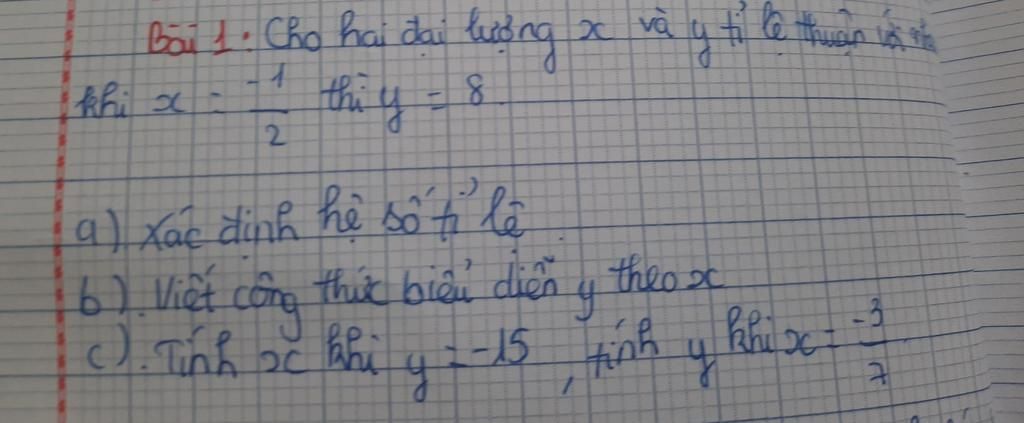 Bài 1: Cho hai đại lượng x và y tỉ lệ thuận với nhau
khi x = -1/2 thì y = 8
a) Xác định hệ số tỉ lệ
b). Viết công thức biểu diễn y theo x
c). Tính x khi y = -15, tính y khi x = -3/7